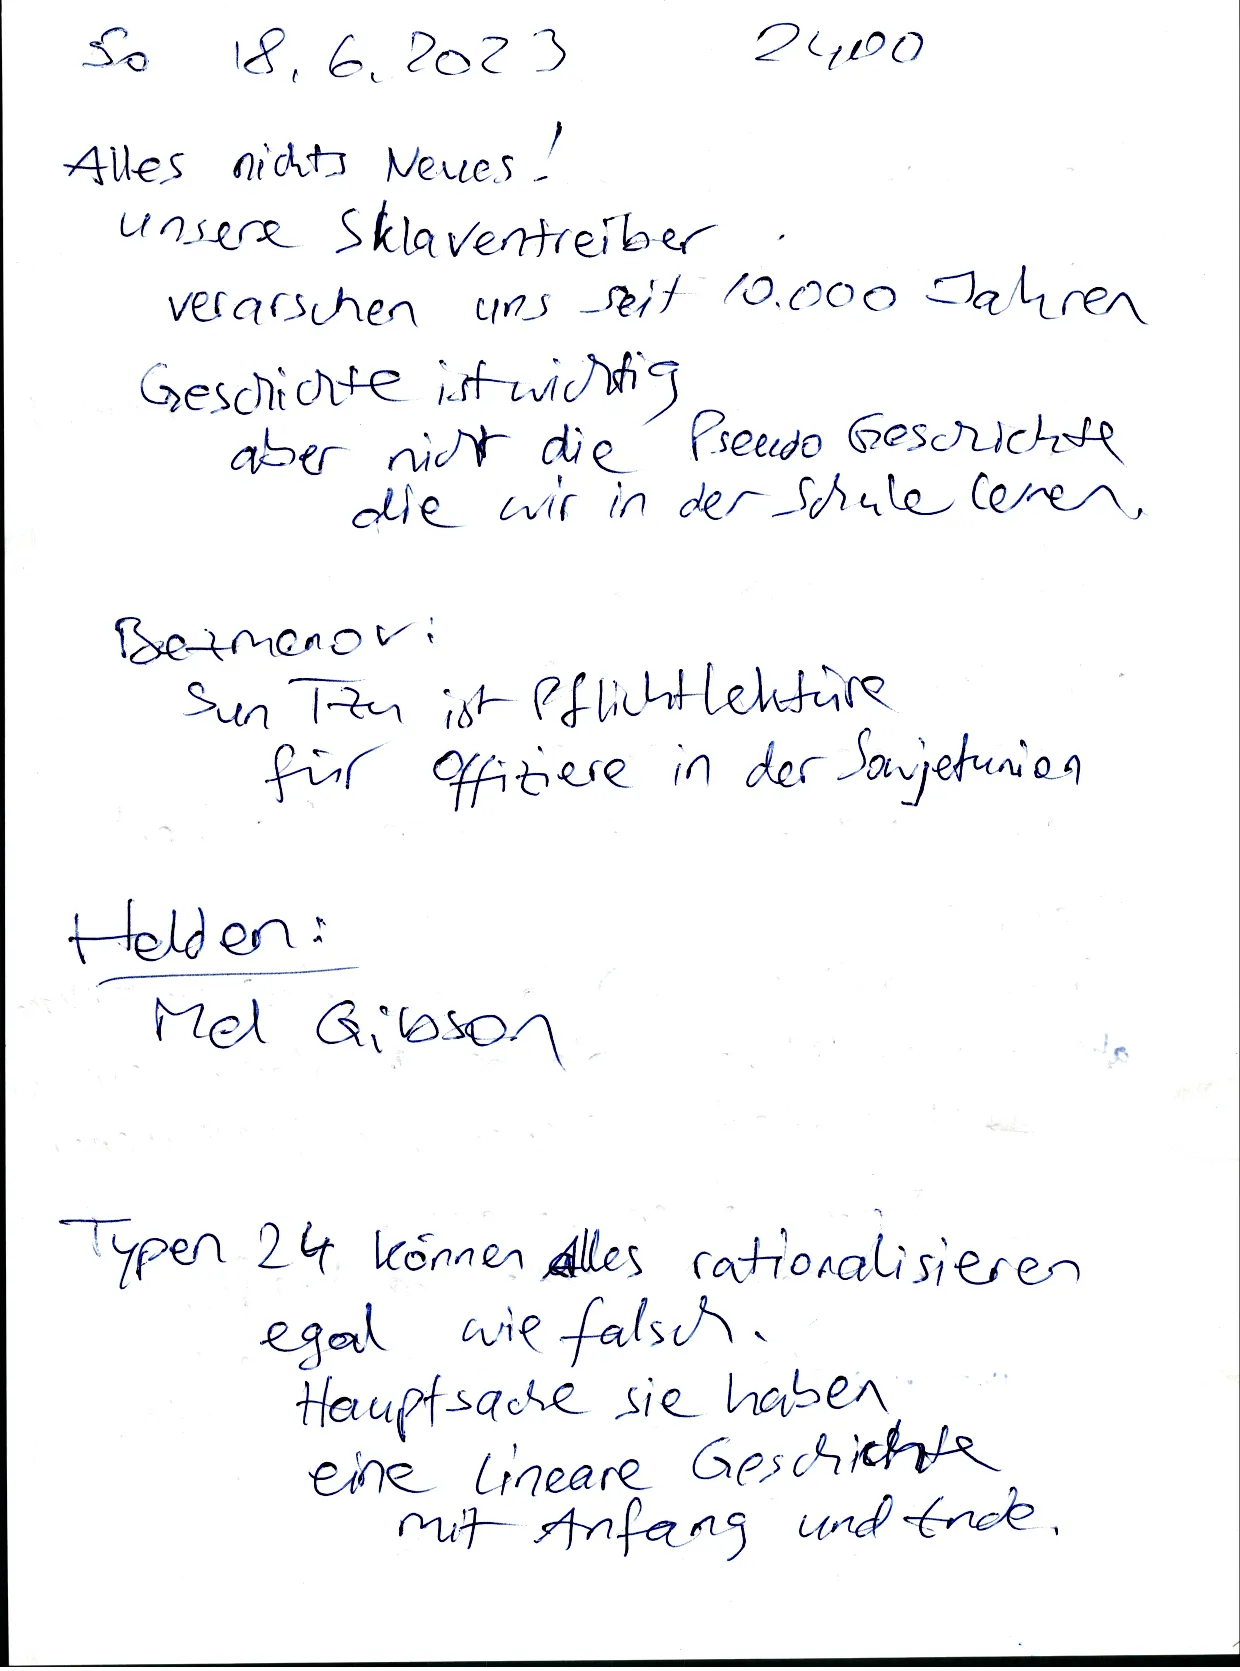 So 18.6.2023 24,00
Alles nichts Neues!
unsere Sklaventreiber
verarschen uns seit 10.000 Jahren
Geschichte ist wichtig
aber nicht die Pseudo Geschichte
die wir in der Schule lernen.
Bezmenov:
Sun Tzu ist Pflichtlektüre
für Offiziere in der Sowjetunion
Helden:
Mel Gibson
Typen 24 können Alles rationalisieren
egal wie falsch.
Hauptsache sie haben
eine lineare Geschichte
mit Anfang und Ende.